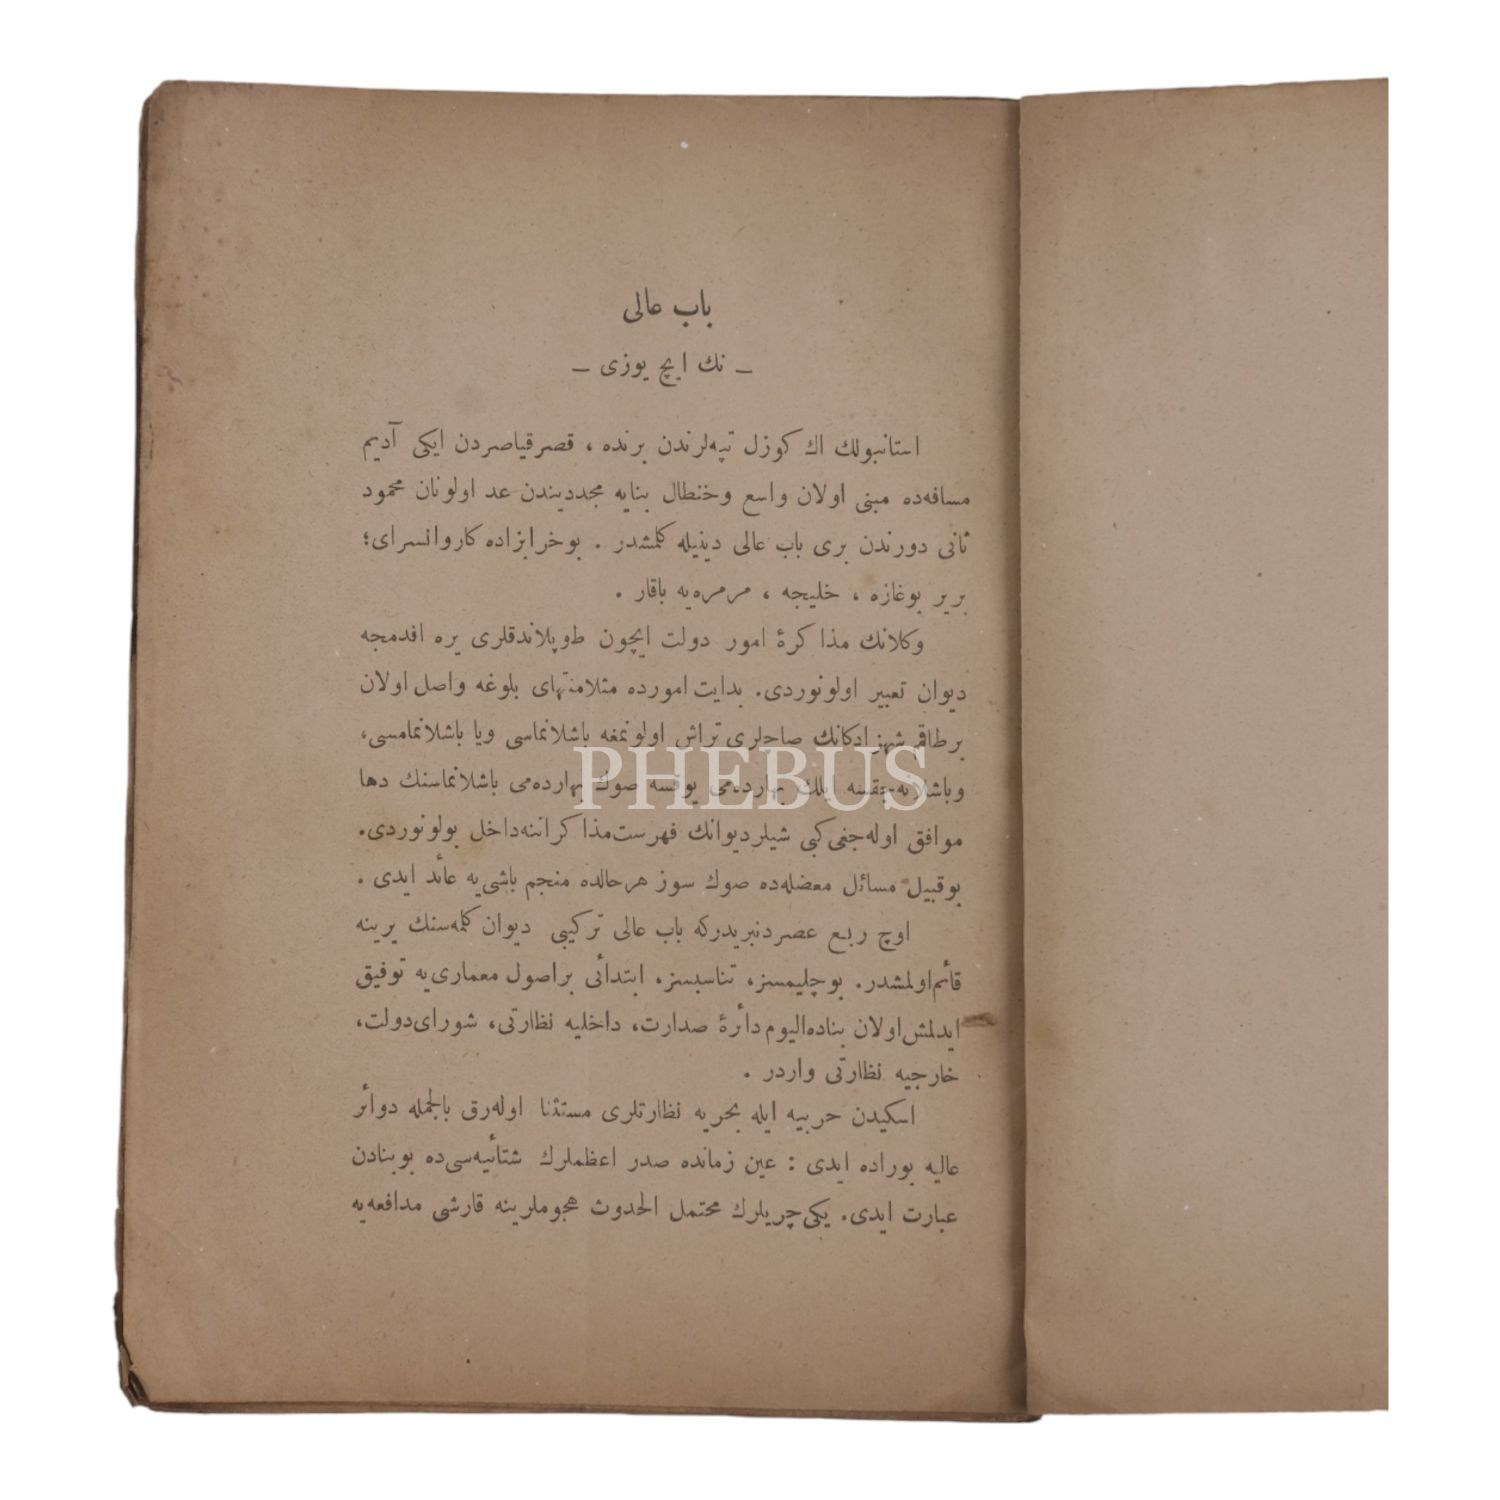 باب عالی
– نك ایچ یوزی –
استانبولك اك كوزل تپه‌لرندن برنده ، قصر قیاصردن ایكی آدیم
مسافه‌ده مبنی اولان واسع وخنطال بنایه مجددیندن عد اولونان محمود
ثانی دورندن بری باب عالی دینیله كلمشدر . بوخرابزاده كاروانسرای؛
بریر بوغازه ، خلیجه ، مرمره‌یه باقار .
وكلانك مذاكرهٔ امور دولت ایچون طوپلاندقلری یره اقدمجه
دیوان تعبیر اولونوردی. بدایت امورده مثلا منتهای بلوغه واصل اولان
برطاقم شهزادكانك صاحلری تراش اولونمغه باشلانماسی ویا باشلانمامسی،
وباشلانه‌جقسه ایلك بهارده‌می یوقسه صوك بهارده‌می باشلانماسنك دها
موافق اوله‌جغی كبی شیلر دیوانك فهرست مذاكراتنه داخل بولونوردی.
بوقبیل مسائل معضله‌ده صوك سوز هرحالده منجم باشی‌یه عائد ایدی .
اوچ ربع عصردنبریدركه باب عالی تركیبی دیوان كلمه‌سنك یرینه
قائم اولمشدر. بوچلیمسز، تناسبسز، ابتدائی براصول معماری‌یه توفیق
ایدلمش اولان بناده الیوم دائرهٔ صدارت، داخلیه نظارتی، شورای دولت،
خارجیه نظارتی واردر .
اسكیدن حربیه ایله بحریه نظارتلری مستثنا اوله‌رق بالجمله دوائر
عالیه بوراده ایدی : عین زمانده صدر اعظملرك شتائیه‌سی ده بوبنادن
عبارت ایدی. یكی‌چریلرك محتمل الحدوث هجوملرینه قارشی مدافعه‌یه
PHEBUS